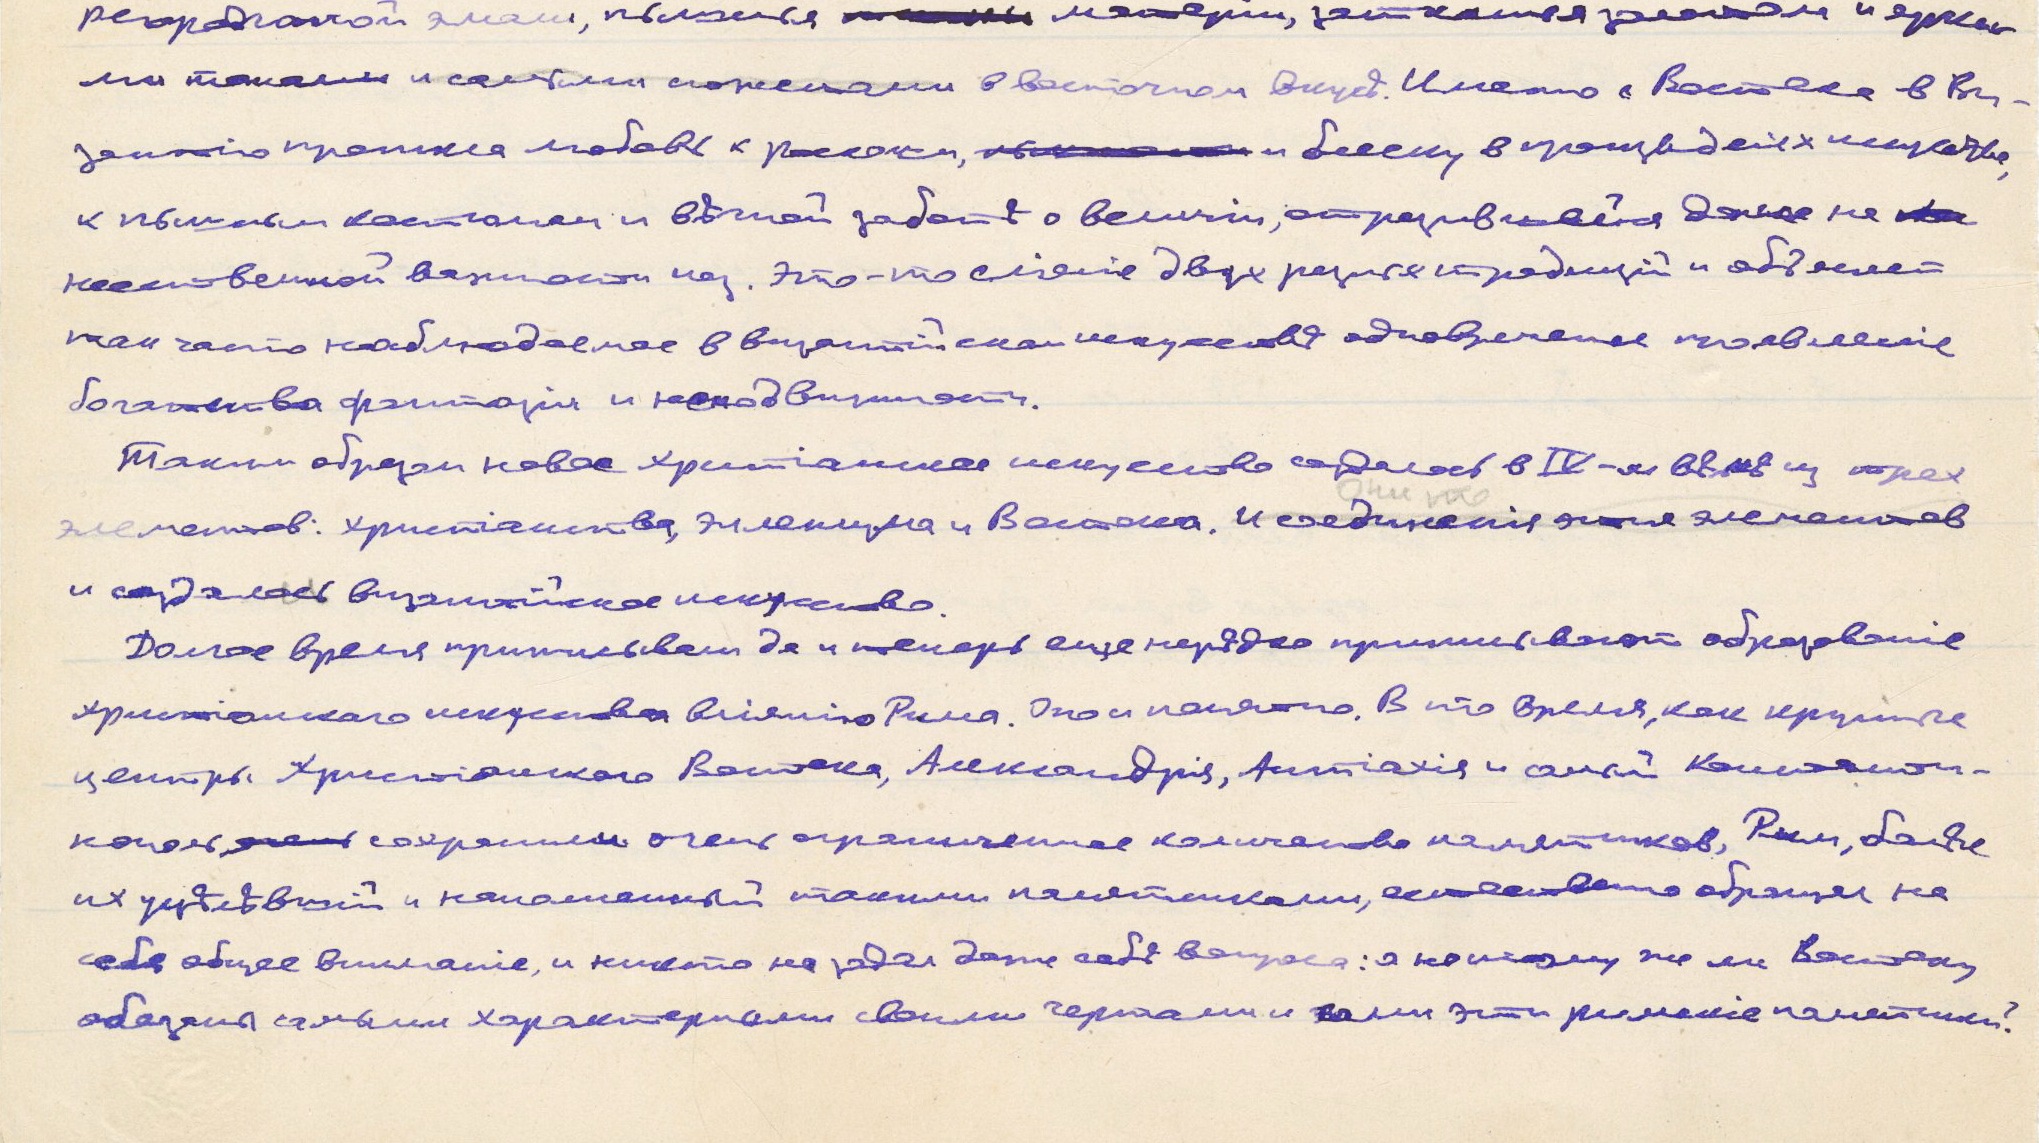 перегородчатой эмали, пышныя матеріи, затканныя золотом и ярки-
ми тонами и самыми сюжетами в восточном вкусѣ. Именно с Востока в Ви-
зантію проникла любовь к роскоши, и блеску в произведеніях искусства,
к пышным костюмам и вѣчной заботѣ о величіи, отразившейся даже на
неественной важности поз. Это-то сліяніе двух разных традицій и объясняет
так часто наблюдаемое в византійском искусствѣ одновременное проявленіе
богатства фантазіи и неподвижности.
Таким образом новое христіанское искусство создалось в IV-м вѣкѣ из трех
элементов: христіанства, эллинизма и Востока. И соединенія этих элементов
они же
и создалось византійское искусство.
Долгое время приписывали да и теперь еще нерѣдко приписывают образованіе
христіанскаго искусства вліянію Рима. Оно и понятно. В то время, как крупные
центры Христіанскаго Востока, Александрія, Антіохія и самый Константи-
нополь, сохранили очень ограниченное количество памятников, Рим, болѣе
их уцѣлѣвшій и наполненный такими памятниками, естественно обращал на
себя общее вниманіе, и никто не задал даже себѣ вопроса: а не тому же ли Востоку
обязаны самыми характерными своими чертами и сами эти римскіе памятники?